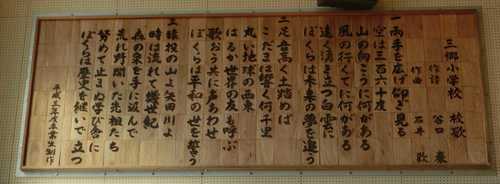 三郷小学校 校歌
作詞 谷口
作曲 石井 歓
一 両手を広げ仰ぎ見る
空は三百六十度
山の向こうに何がある
風の行くてに何がある
遠く湧き立つ白雲に
ぼくらは未来の夢を追う
二 足音高く土踏めば
こだまは響く何千里
丸い地球の西東
はるか世界の友も呼ぶ
歌おう共に声あわせ
ぼくらは平和の世を誓う
三 猿投の山よ矢田川よ
時は流れて幾世紀
森の泉を手に汲んで
荒れ野開いた先祖たち
努めて止まぬ学び舎に
ぼくらは歴史を継いで立つ
平成三年度卒業生制作